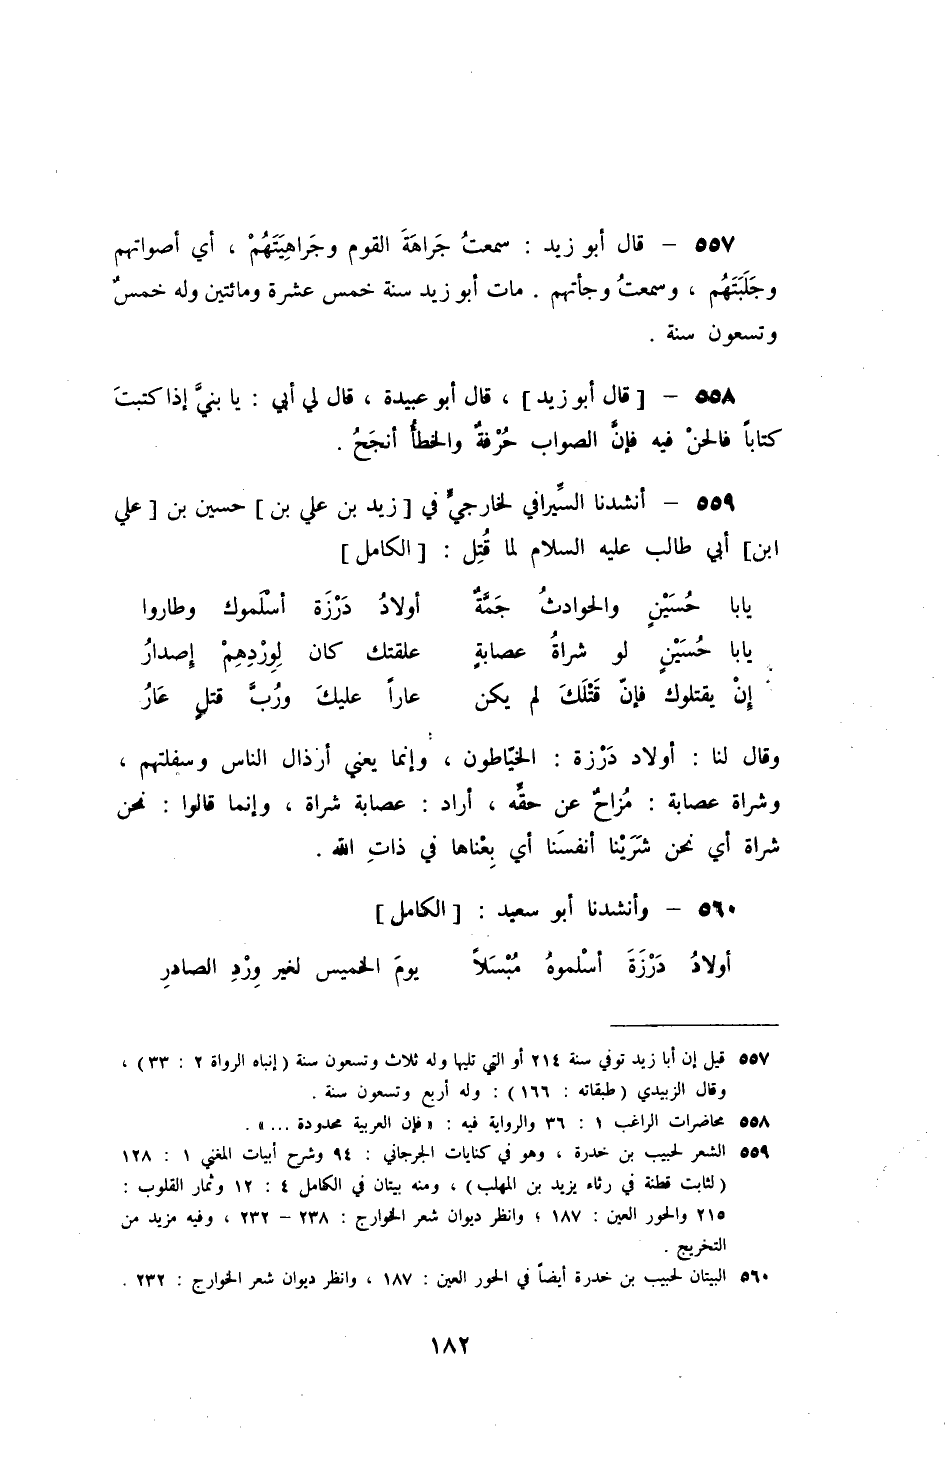 ٥٥٧ – قال أبو زيد : سمعتُ جَراهَةَ القوم وجَراهِيَتَهُمْ ، أي أصواتهم
وجَلَبَتَهُم ، وسمعتُ وجأتهم . مات أبو زيد سنة خمس عشرة ومائتين وله خمسٌ
وتسعون سنة .
٥٥٨ – [ قال أبو زيد ] ، قال أبو عبيدة ، قال لي أبي : يا بنيَّ إذا كتبتَ
كتاباً فالحنْ فيه فإنَّ الصواب حُرْفةٌ والخطأُ أنجَحُ .
٥٥٩ – أنشدنا السِّيرافي لخارجيٍّ في [ زيد بن علي بن ] حسين بن [ علي
ابن] أبي طالب عليه السلام لما قُتِل : [ الكامل ]
يابا حُسَيْنٍ والحوادثُ جَمَّةٌ أولادُ دَرْزَة أسْلَموك وطاروا
يابا حُسَيْنٍ لو شراةُ عصابةٍ علقتك كان لِوِرْدِهِمْ إصدارُ
إنْ يقتلوك فإنّ قَتْلَكَ لم يكن عاراً عليكَ ورُبَّ قتلٍ عَارُ
وقال لنا : أولاد دَرْزة : الخيّاطون ، وإنما يعني أرذال الناس وسفلتهم ،
وشراة عصابة : مُزاحٌ عن حقّه ، أراد : عصابة شراة ، وإنما قالوا : نحن
شراة أي نحن شَرَيْنا أنفسَنا أي بِعْناها في ذاتِ الله .
٥٦٠ – وأنشدنا أبو سعيد : [ الكامل ]
أولادُ دَرْزَةَ أسْلموهُ مُبْسَلاً يومَ الخميس لغير وِرْدِ الصادرِ
٥٥٧ قيل إن أبا زيد توفي سنة ٢١٤ أو التي تليها وله ثلاث وتسعون سنة ( إنباه الرواة ٢ : ٣٣ ) ،
وقال الزبيدي ( طبقاته : ١٦٦ ) : وله أربع وتسعون سنة .
٥٥٨ محاضرات الراغب ١ : ٣٦ والرواية فيه : « فإن العربية محدودة ... » .
٥٥٩ الشعر لحبيب بن خدرة ، وهو في كنايات الجرجاني : ٩٤ وشرح أبيات المغني ١ : ١٢٨
( لثابت قطنة في رثاء يزيد بن المهلب ) ، ومنه بيتان في الكامل ٤ : ١٢ وثمار القلوب :
٢١٥ والحور العين : ١٨٧ ؛ وانظر ديوان شعر الخوارج : ٢٣٨ – ٢٣٢ ، وفيه مزيد من
التخريج .
٥٦٠ البيتان لحبيب بن خدرة أيضاً في الحور العين : ١٨٧ ، وانظر ديوان شعر الخوارج : ٢٣٢ .
١٨٢